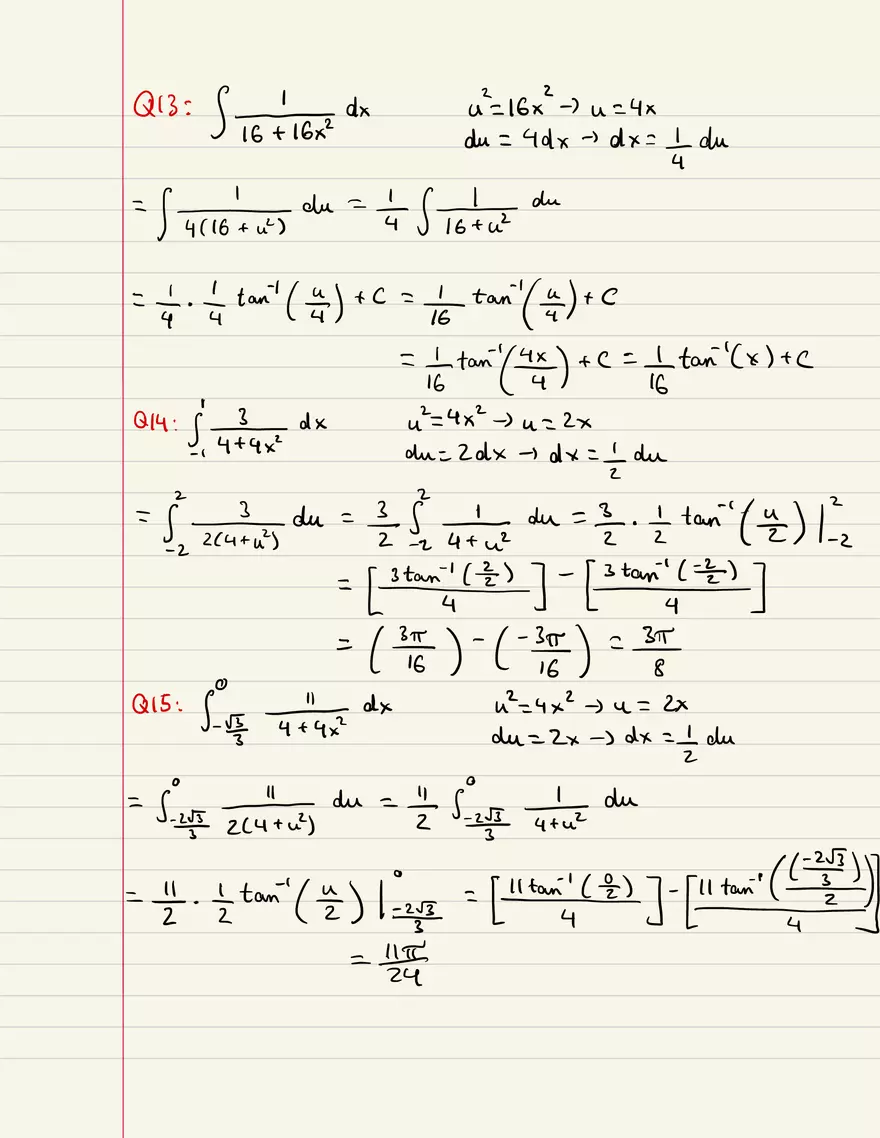 Q13: ∫ 1/(16 + 16x²) dx    u² = 16x² → u = 4x
du = 4dx → dx = 1/4 du
= ∫ 1/(4(16 + u²)) du = 1/4 ∫ 1/(16 + u²) du
= 1/4 · 1/4 tan⁻¹(u/4) + C = 1/16 tan⁻¹(u/4) + C
= 1/16 tan⁻¹(4x/4) + C = 1/16 tan⁻¹(x) + C
Q14: ∫₋₁¹ 3/(4+4x²) dx    u² = 4x² → u = 2x
du = 2dx → dx = 1/2 du
= ∫₋₂² 3/(2(4+u²)) du = 3/2 ∫₋₂² 1/(4+u²) du = 3/2 · 1/2 tan⁻¹(u/2) |₋₂²
= [3tan⁻¹(2/2)/4] − [3tan⁻¹(−2/2)/4]
= (3π/16) − (−3π/16) = 3π/8
Q15: ∫_{−√3/3}^{0} 11/(4 + 4x²) dx    u² = 4x² → u = 2x
du = 2x → dx = 1/2 du
= ∫_{−2√3/3}^{0} 11/(2(4+u²)) du = 11/2 ∫_{−2√3/3}^{0} 1/(4+u²) du
= 11/2 · 1/2 tan⁻¹(u/2) |_{−2√3/3}^{0} = [11tan⁻¹(0/2)/4] − [11tan⁻¹((−2√3/3)/2)/4]
= 11π/24